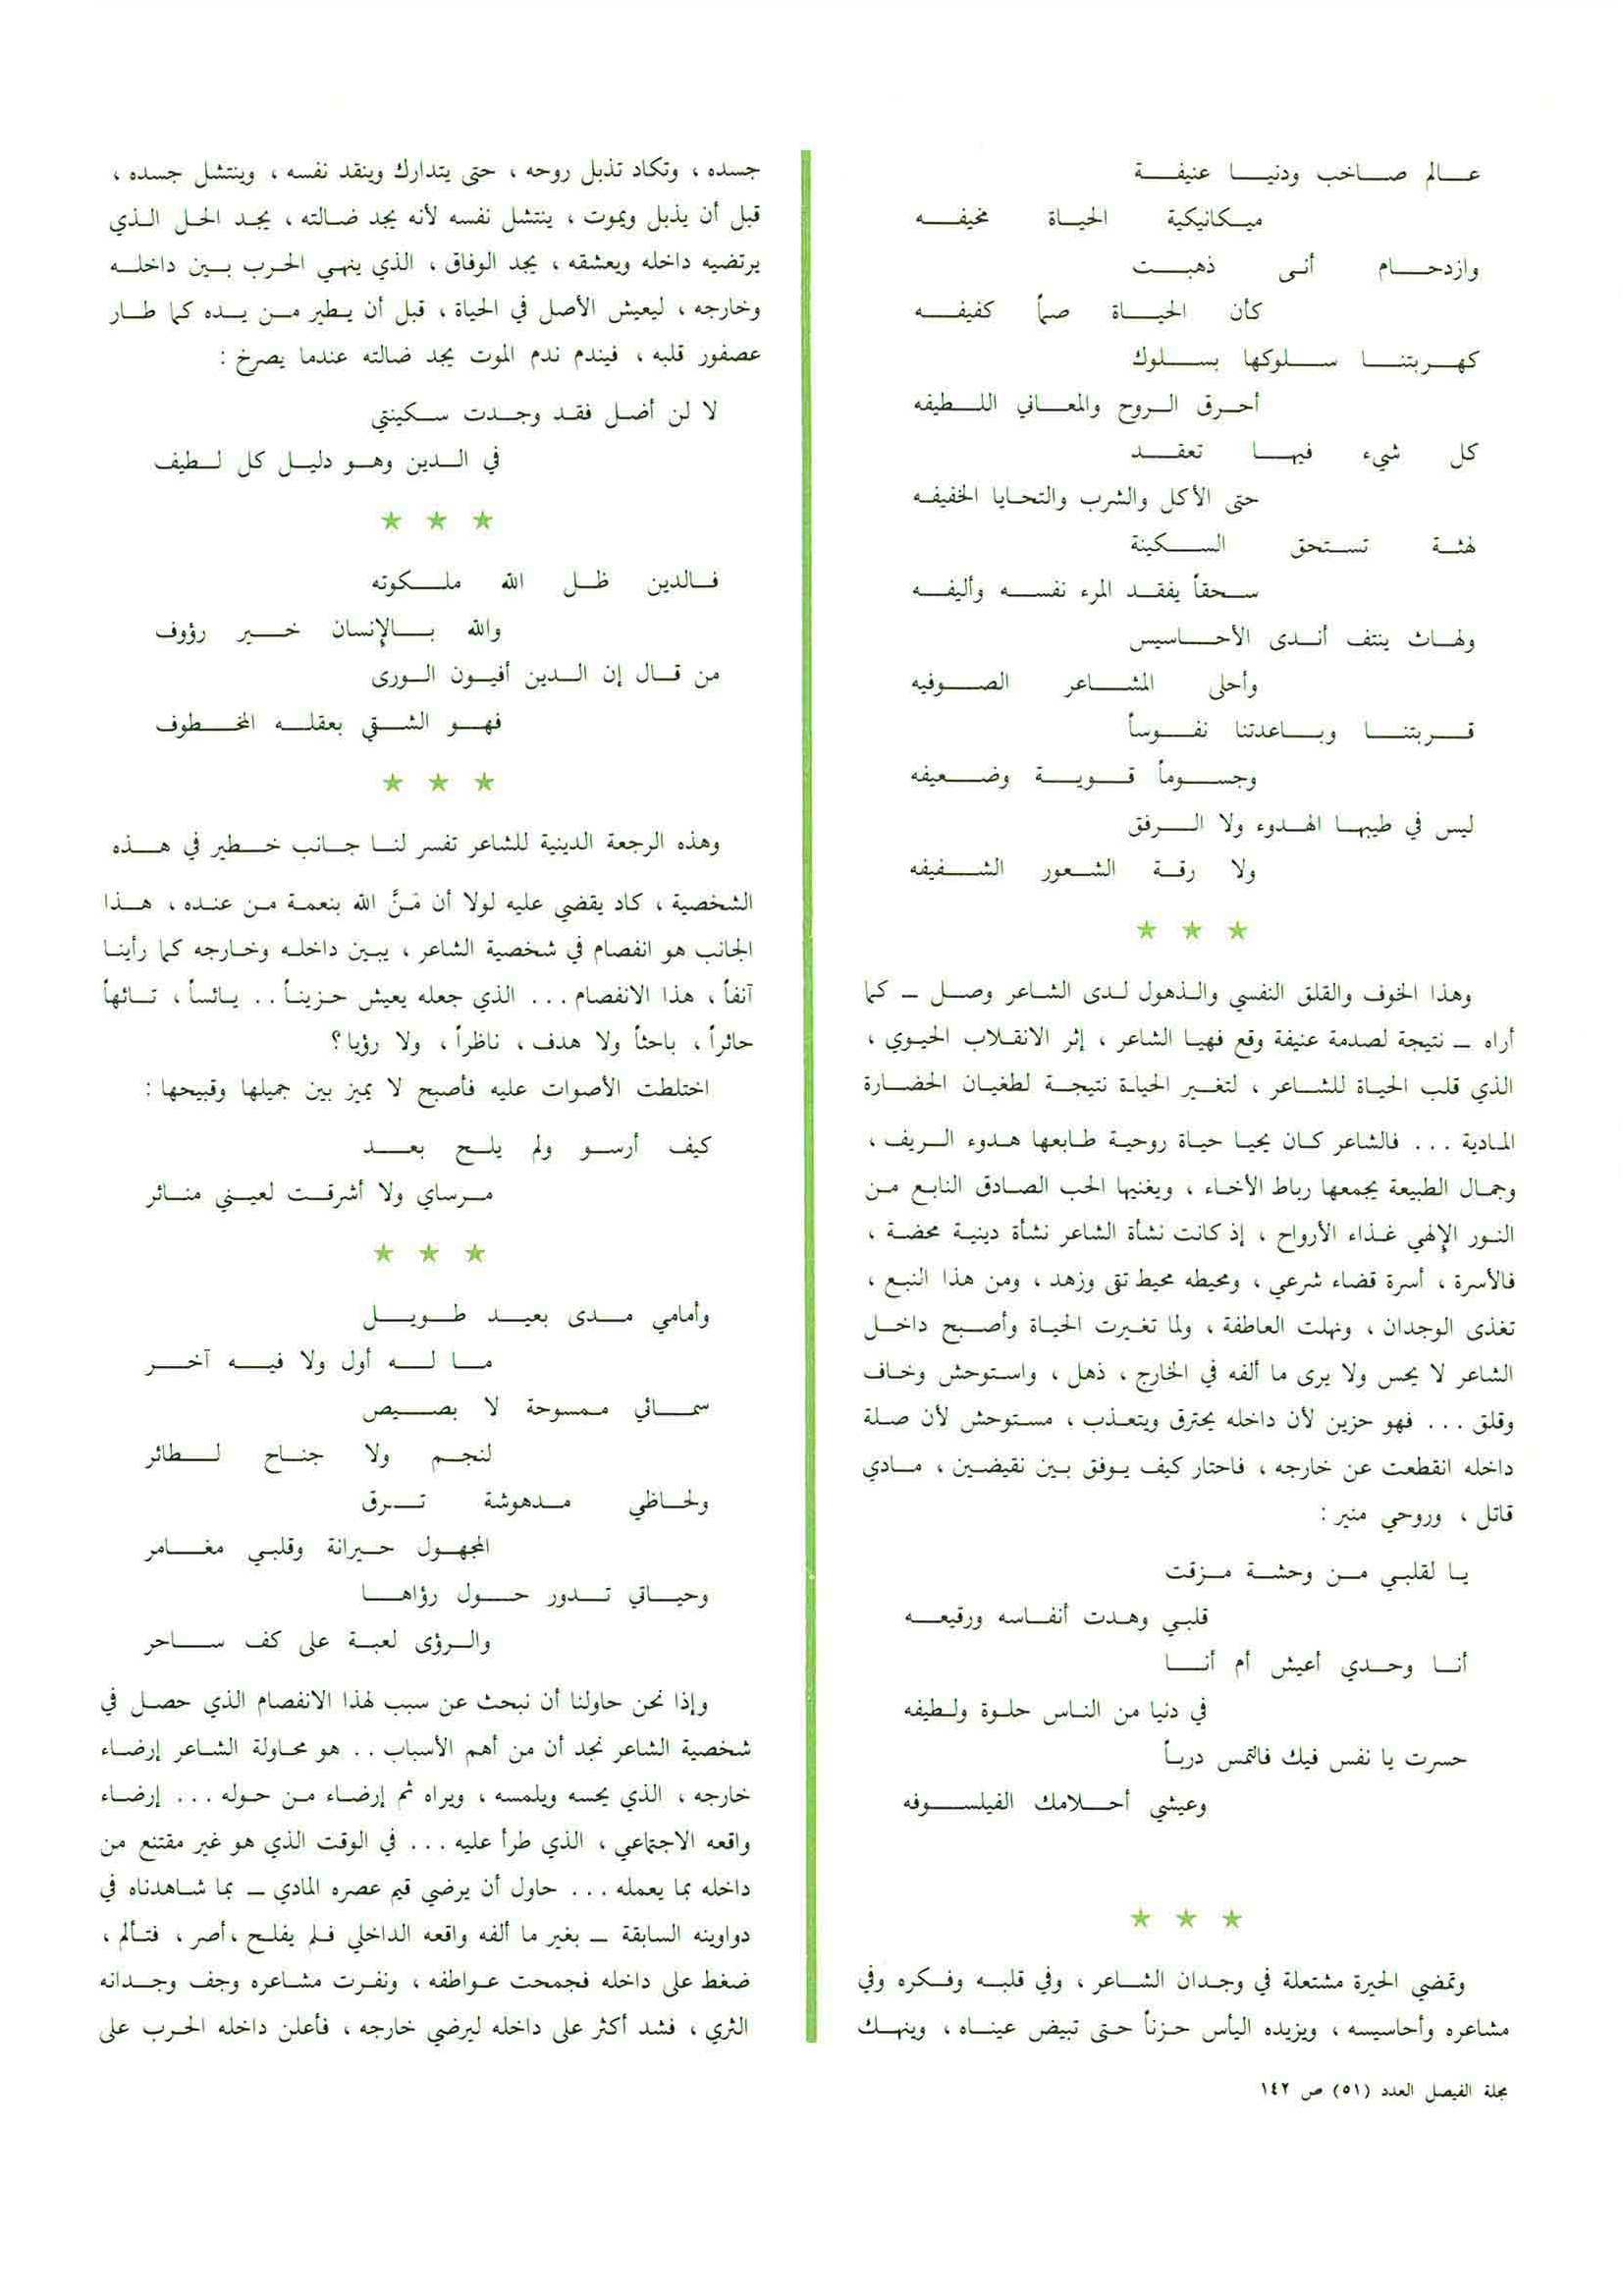 عالم صاخب ودنيا عنيفة
ميكانيكية الحياة مخيفه
وازدحام أنى ذهبت
كأن الحياة صماً كفيفه
كهربتنا سلوكها بسلوك
أحرق الروح والمعاني اللطيفه
كل شيء فيها تعقد
حتى الأكل والشرب والتحايا الخفيفه
لهثة تستحق السكينة
سحقاً يفقد المرء نفسه وأليفه
ولهاث ينتف أندى الأحاسيس
وأحلى المشاعر الصوفيه
قربتنا وباعدتنا نفوساً
وجسوماً قوية وضعيفه
ليس في طيبها الهدوء ولا الرفق
ولا رقة الشعور الشفيفه
★ ★ ★
وهذا الخوف والقلق النفسي والذهول لدى الشاعر وصل – كما
أراه – نتيجة لصدمة عنيفة وقع فهيا الشاعر ، إثر الانقلاب الحيوي ،
الذي قلب الحياة للشاعر ، لتغير الحياة نتيجة لطغيان الحضارة
المادية ... فالشاعر كان يحيا حياة روحية طابعها هدوء الريف ،
وجمال الطبيعة يجمعها رباط الأخاء ، ويغنيها الحب الصادق النابع من
النور الإلهي غذاء الأرواح ، إذ كانت نشأة الشاعر نشأة دينية محضة ،
فالأسرة ، أسرة قضاء شرعي ، ومحيطه محيط تقى وزهد ، ومن هذا النبع ،
تغذى الوجدان ، ونهلت العاطفة ، ولما تغيرت الحياة وأصبح داخل
الشاعر لا يحس ولا يرى ما ألفه في الخارج ، ذهل ، واستوحش وخاف
وقلق ... فهو حزين لأن داخله يحترق ويتعذب ، مستوحش لأن صلة
داخله انقطعت عن خارجه ، فاحتار كيف يوفق بين نقيضين ، مادي
قاتل ، وروحي منير :
يا لقلبي من وحشة مزقت
قلبي وهدت أنفاسه ورقيعه
أنا وحدي أعيش أم أنا
في دنيا من الناس حلوة ولطيفه
حسرت يا نفس فيك فالتمس درباً
وعيشي أحلامك الفيلسوفه
★ ★ ★
وتمضي الحيرة مشتعلة في وجدان الشاعر ، وفي قلبه وفكره وفي
مشاعره وأحاسيسه ، ويزيده اليأس حزناً حتى تبيض عيناه ، وينهك
مجلة الفيصل العدد (٥١) ص ١٤٢
جسده ، وتكاد تذبل روحه ، حتى يتدارك وينقد نفسه ، وينتشل جسده ،
قبل أن يذبل ويموت ، ينتشل نفسه لأنه يجد ضالته ، يجد الحل الذي
يرتضيه داخله ويعشقه ، يجد الوفاق ، الذي ينهي الحرب بين داخله
وخارجه ، ليعيش الأصل في الحياة ، قبل أن يطير من يده كما طار
عصفور قلبه ، فيندم ندم الموت يجد ضالته عندما يصرخ :
لا لن أضل فقد وجدت سكينتي
في الدين وهو دليل كل لطيف
★ ★ ★
فالدين ظل الله ملكوته
والله بالإنسان خير رؤوف
من قال إن الدين أفيون الورى
فهو الشقي بعقله المخطوف
★ ★ ★
وهذه الرجعة الدينية للشاعر تفسر لنا جانب خطير في هذه
الشخصية ، كاد يقضي عليه لولا أن مَنَّ الله بنعمة من عنده ، هذا
الجانب هو انفصام في شخصية الشاعر ، يبين داخله وخارجه كما رأينا
آنفاً ، هذا الانفصام ... الذي جعله يعيش حزيناً .. يائساً ، تائهاً
حائراً ، باحثاً ولا هدف ، ناظراً ، ولا رؤيا ؟
اختلطت الأصوات عليه فأصبح لا يميز بين جميلها وقبيحها :
كيف أرسو ولم يلح بعد
مرساي ولا أشرقت لعيني منائر
★ ★ ★
وأمامي مدى بعيد طويل
ما له أول ولا فيه آخر
سمائي ممسوحة لا بصيص
لنجم ولا جناح لطائر
ولحاظي مدهوشة ترق
المجهول حيرانة وقلبي مغامر
وحياتي تدور حول رؤاها
والرؤى لعبة على كف ساحر
وإذا نحن حاولنا أن نبحث عن سبب لهذا الانفصام الذي حصل في
شخصية الشاعر نجد أن من أهم الأسباب .. هو محاولة الشاعر إرضاء
خارجه ، الذي يحسه ويلمسه ، ويراه ثم إرضاء من حوله ... إرضاء
واقعه الاجتماعي ، الذي طرأ عليه ... في الوقت الذي هو غير مقتنع من
داخله بما يعمله ... حاول أن يرضي قيم عصره المادي – بما شاهدناه في
دواوينه السابقة – بغير ما ألفه واقعه الداخلي فلم يفلح ، أصر ، فتألم ،
ضغط على داخله فجمحت عواطفه ، ونفرت مشاعره وجف وجدانه
الثري ، فشد أكثر على داخله ليرضي خارجه ، فأعلن داخله الحرب على